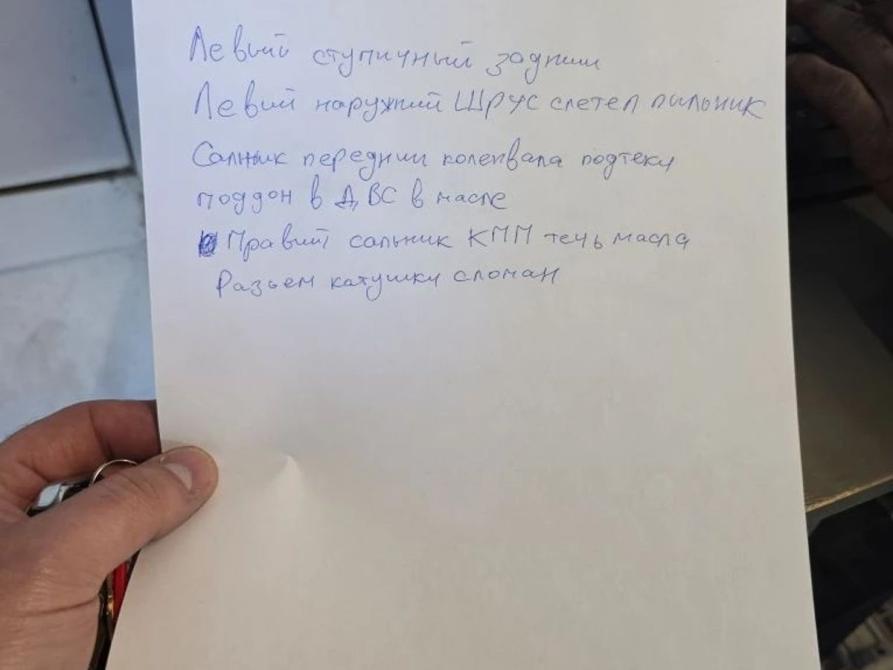 Левый ступичный задний
Левий наружний ШРУС слетел пыльник
Салник передний коленвала подтеки
поддон в ДВС в масле
Правий сальник КПП течь масла
Разьем катушки сломан